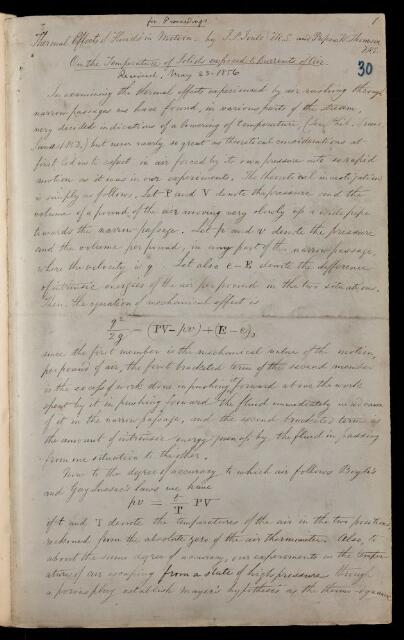 for Proceedings
1
Thermal Effects of Fluids in Motion. by J. P. Joule F.R.S. and Professor W. Thomson
F.R.S.
30
On the Temperature of Solids exposed to Currents of Air.
Received, May 23. 1856
In examining the thermal effects experienced by air rushing through
narrow passages we have found, in various parts of the stream,
very decided indications of a lowering of temperature,
June 1853,) but never nearly so great as theoretical considerations at
first led us to expect, in air forced by its own pressure into so rapid
motion as it was in our experiments. The theoretical investigation
is simply as follows. Let P and V denote the pressure and the
volume of a pound of the air moving very slowly up a wide pipe
towards the narrow passage. Let p and v denote the pressure
and the volume per pound, in any part of the narrow passage,
where the velocity is q. Let also e - E denote the difference
of intrinsic energies of the air per pound in the two situations.
Then the equation of mechanical effect is
q²/2g = (PV - pv) + (E - e),
since the first member is the mechanical value of the motion,
per pound of air, the first bracketed term of the second member
is the excess of work done in pushing it forward above the work
spent by it in pushing forward the fluid immediately in advance
of it in the narrow passage, and the second bracketed term is
the amount of intrinsic energy given up by the fluid in passing
from one situation to the other.
Now to the degree of accuracy to which air follows Boyle's
and Gay Lussac's laws we have
pv = t/T PV
if t and T denote the temperatures of the air in the two positions
reckoned from the absolute zero of the air thermometer. Also, to
about the same degree of accuracy, our experiments on the temper-
ature of air escaping from a state of high pressure through
a porous plug establish Mayer's hypothesis as the thermo-dynamic